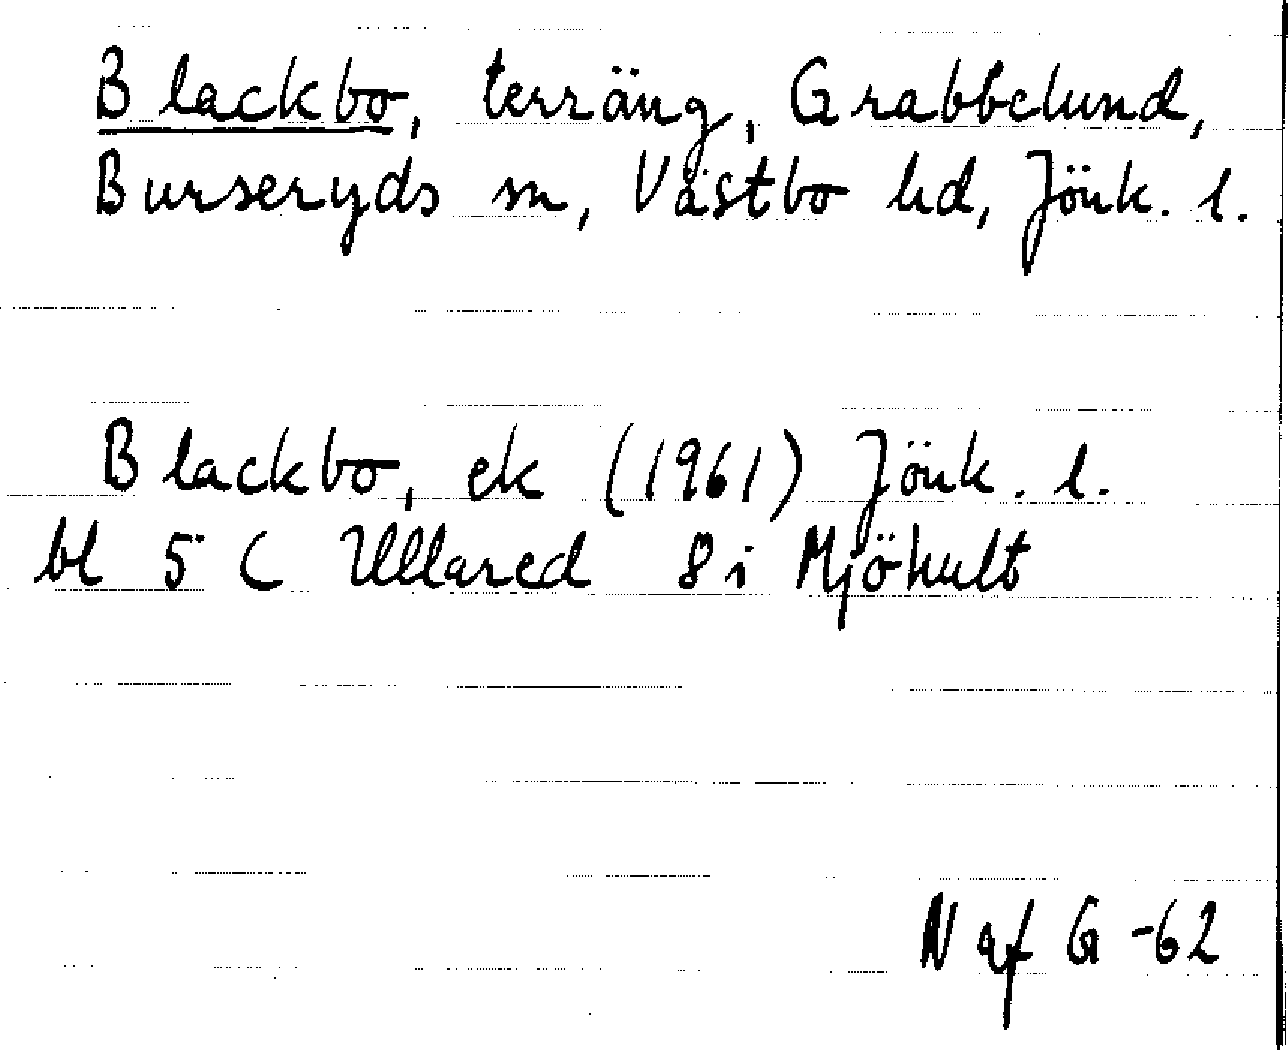 Blackbo, terräng, Grabbelund,
Burseryds sn, Västbo hd, Jönk. l.
Blackbo, ek (1961) Jönk. l.
bl 5 C Ullared 8 i Mjöhult
N af G -62